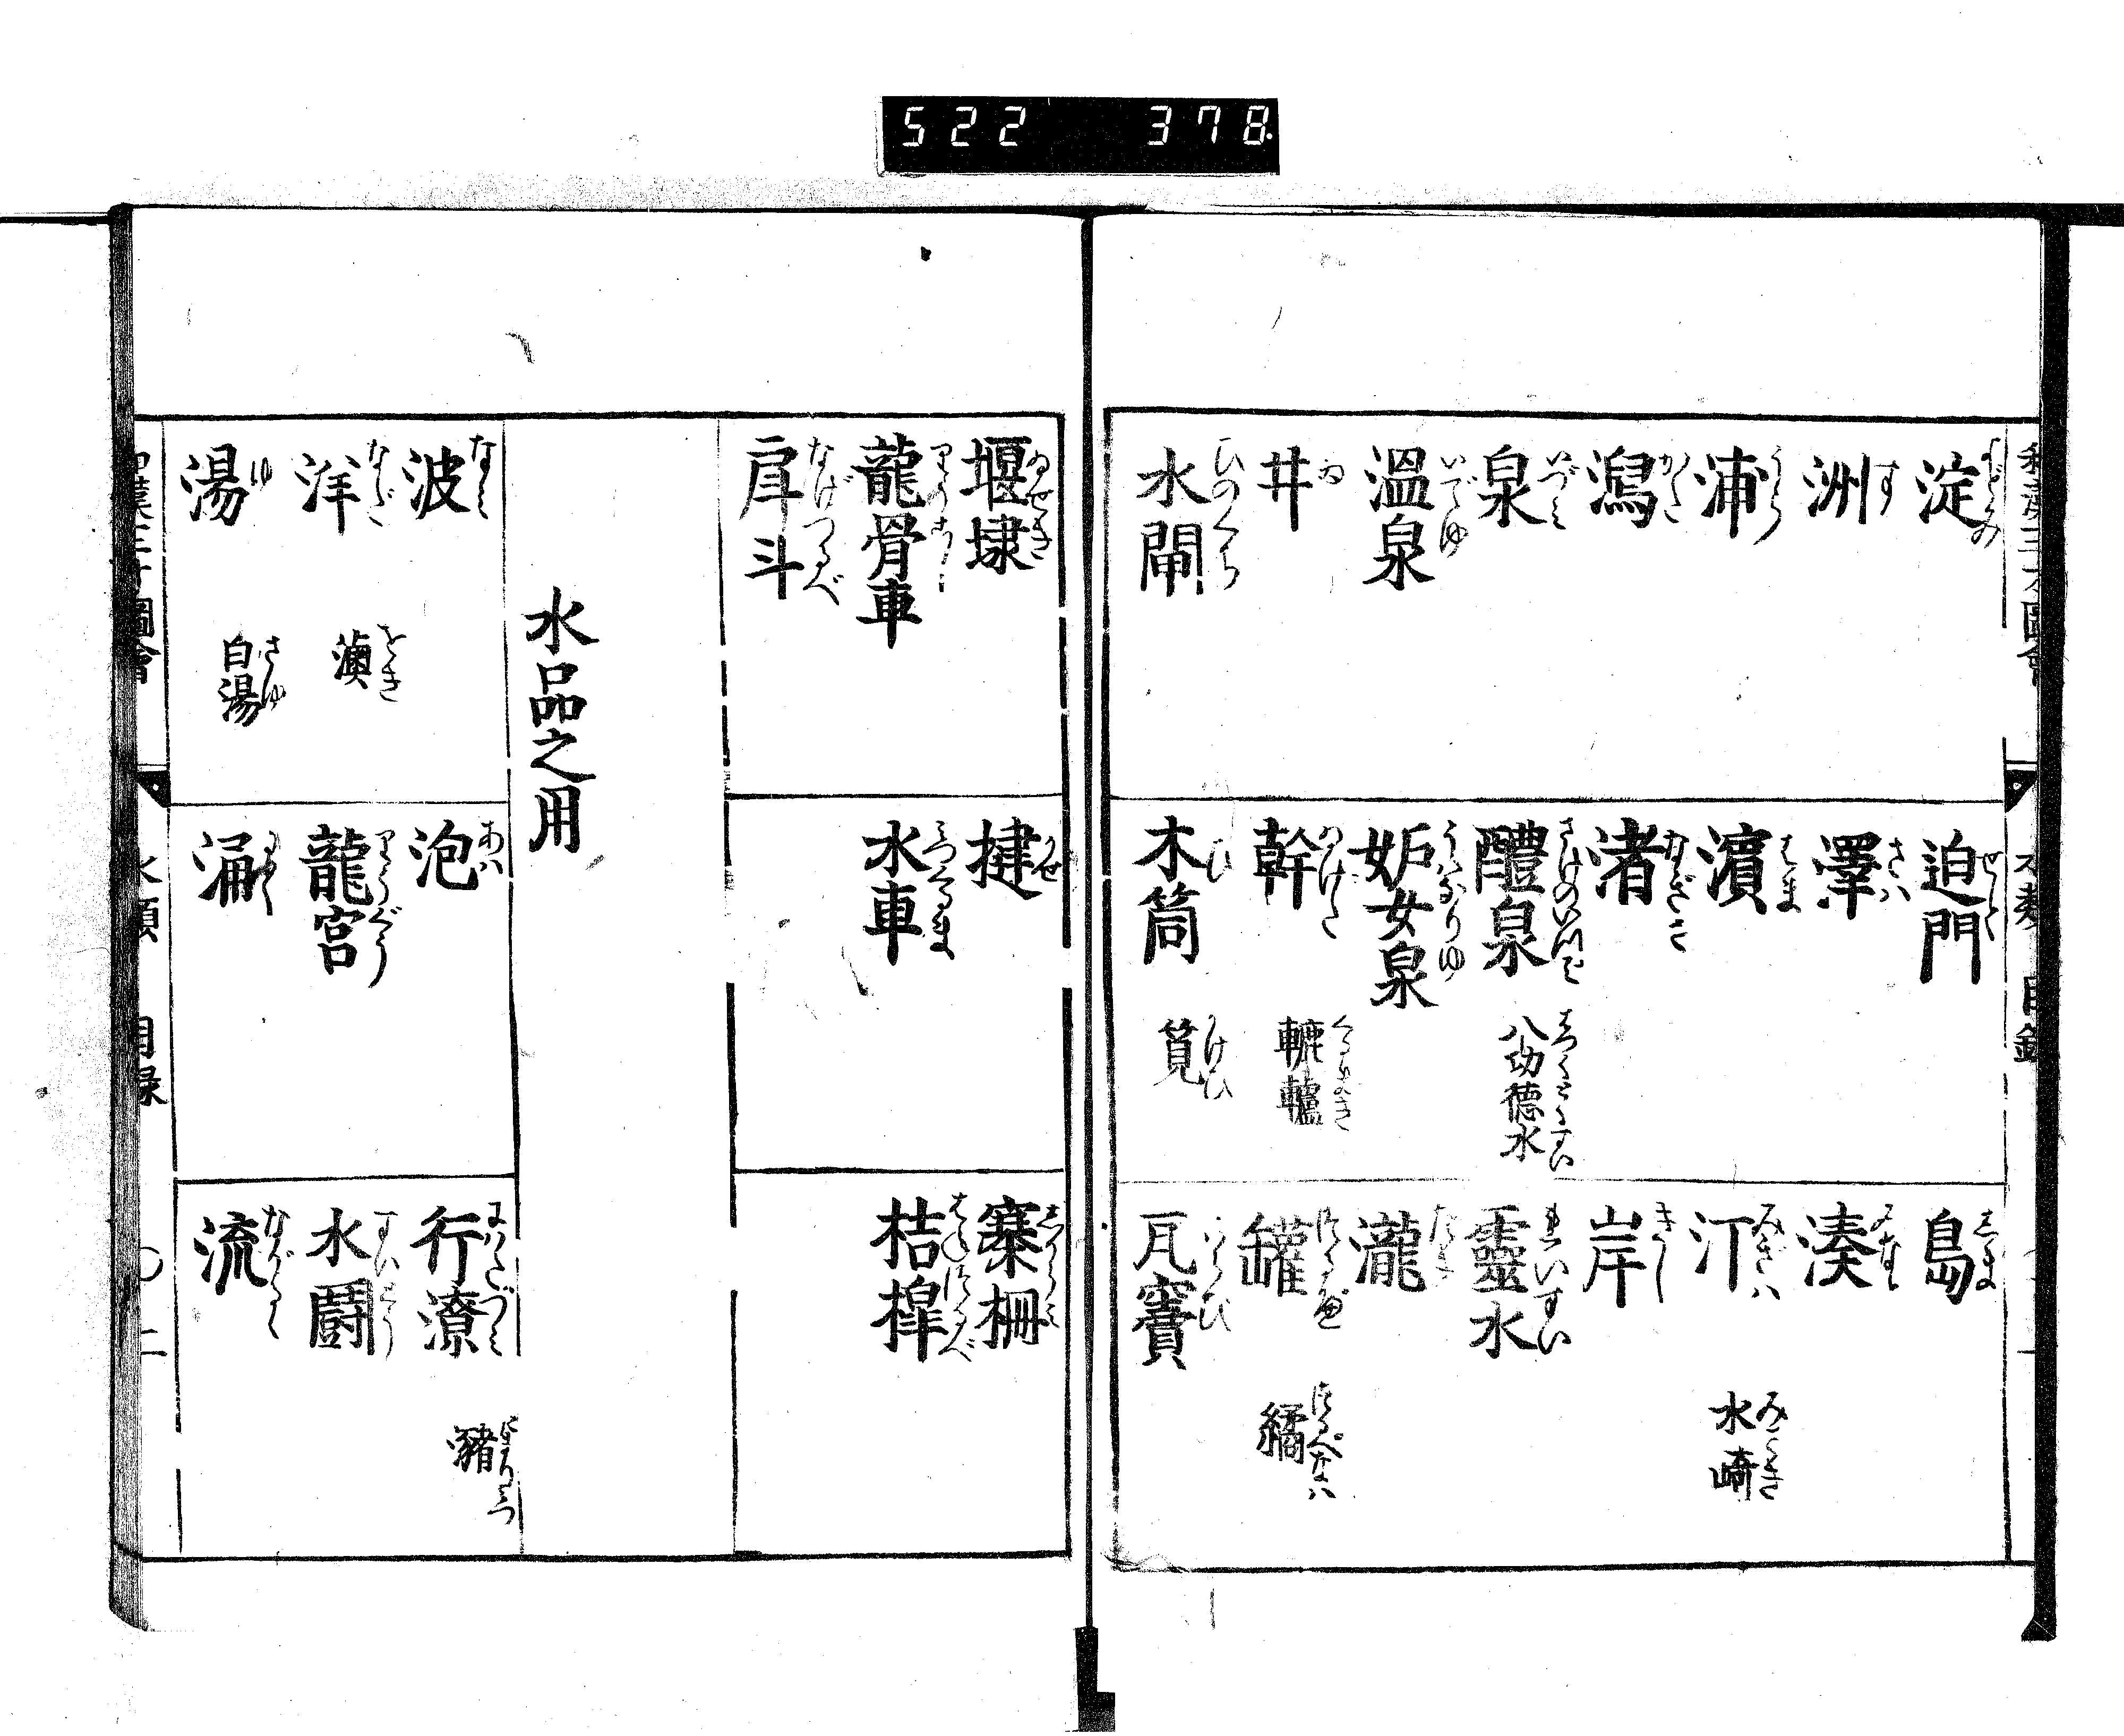 522 378
淀 よどみ
迫門 せと
島 しま
洲 す
澤 さハ
湊 みなと
浦 うら
濵 はま
汀 みぎハ
水﨑 みづさき
瀉 かた
渚 なぎさ
岸 きし
泉 いづミ
醴泉 さけのいづミ
八功德水 はつくどくすい
靈水 れいすい
溫泉 いでゆ
妒女泉 うハなりゆ
瀧 たき
井 ゐ
幹 いげた
轆轤 くるまき
罐 つるべ
繘 つるべなハ
水閘 ひのくち
木筒 ひ
筧 かけひ
瓦竇 いしひ
堰埭 ゐせき
揵 かせ
寨柵 しがらミ
龍骨車 りうこし
水車 みづくるま
桔槹 はねつるべ
戽斗 なげつるべ
水品之用
波 なミ
泡 あハ
行潦 にハたづミ
瀦 にはたづミ
洋 なだ
澳 をき
龍宮 りうぐう
水鬪 すいとう
湯 ゆ
白湯 さゆ
涌 わく
流 ながるゝ
和漢三才圖會 水類 目録 〇二